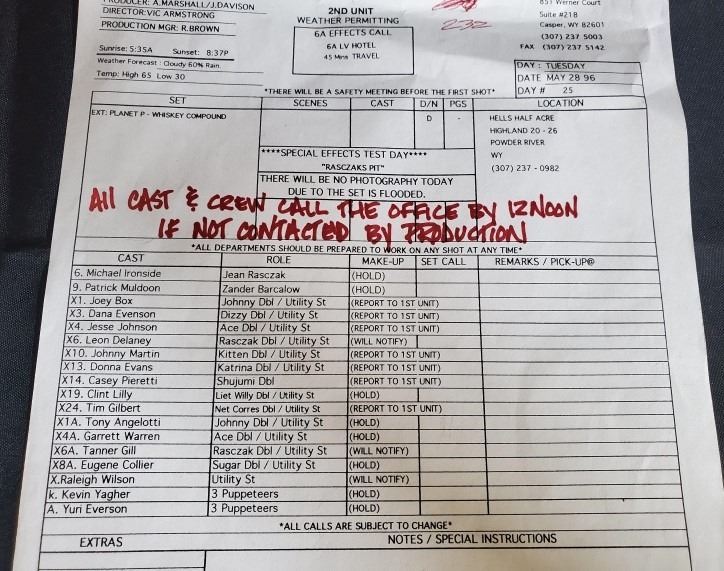 PRODUCER: A.MARSHALL/J.DAVISON
DIRECTOR: VIC ARMSTRONG
PRODUCTION MGR: R.BROWN
Sunrise: 5:35A Sunset: 8:37P
Weather Forecast: Cloudy 60% Rain.
Temp: High 65 Low 30
2ND UNIT
WEATHER PERMITTING
6A EFFECTS CALL
6A LV HOTEL
45 Mins TRAVEL
232
851 Werner Court
Suite #218
Casper, WY 82601
(307) 237 5003
FAX (307) 237 5142
DAY : TUESDAY
DATE MAY 28 96
DAY # 25
*THERE WILL BE A SAFETY MEETING BEFORE THE FIRST SHOT*
SET SCENES CAST D/N PGS LOCATION
EXT: PLANET P - WHISKEY COMPOUND
D -
****SPECIAL EFFECTS TEST DAY****
"RASCZAKS PIT"
THERE WILL BE NO PHOTOGRAPHY TODAY
DUE TO THE SET IS FLOODED.
HELLS HALF ACRE
HIGHLAND 20 - 26
POWDER RIVER
WY
(307) 237 - 0982
All CAST & CREW CALL THE OFFICE BY 12NOON
IF NOT CONTACTED BY PRODUCTION
*ALL DEPARTMENTS SHOULD BE PREPARED TO WORK ON ANY SHOT AT ANY TIME*
CAST ROLE MAKE-UP SET CALL REMARKS / PICK-UP@
6. Michael Ironside Jean Rasczak (HOLD)
9. Patrick Muldoon Zander Barcalow (HOLD)
X1. Joey Box Johnny Dbl / Utility St (REPORT TO 1ST UNIT)
X3. Dana Evenson Dizzy Dbl / Utility St (REPORT TO 1ST UNIT)
X4. Jesse Johnson Ace Dbl / Utility St (REPORT TO 1ST UNIT)
X6. Leon Delaney Rasczak Dbl / Utility St (WILL NOTIFY)
X10. Johnny Martin Kitten Dbl / Utility St (REPORT TO 1ST UNIT)
X13. Donna Evans Katrina Dbl / Utility St (REPORT TO 1ST UNIT)
X14. Casey Pieretti Shujumi Dbl (REPORT TO 1ST UNIT)
X19. Clint Lilly Liet Willy Dbl / Utility St (HOLD)
X24. Tim Gilbert Net Corres Dbl / Utility St (REPORT TO 1ST UNIT)
X1A. Tony Angelotti Johnny Dbl / Utility St (HOLD)
X4A. Garrett Warren Ace Dbl / Utility St (HOLD)
X6A. Tanner Gill Rasczak Dbl / Utility St (WILL NOTIFY)
X8A. Eugene Collier Sugar Dbl / Utility St (HOLD)
X.Raleigh Wilson Utility St (WILL NOTIFY)
k. Kevin Yagher 3 Puppeteers (HOLD)
A. Yuri Everson 3 Puppeteers (HOLD)
*ALL CALLS ARE SUBJECT TO CHANGE*
EXTRAS NOTES / SPECIAL INSTRUCTIONS